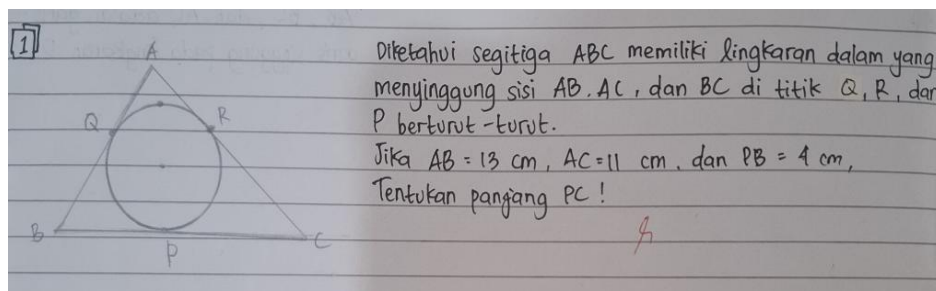 1
Diketahui segitiga ABC memiliki lingkaran dalam yang
menyinggung sisi AB, AC, dan BC di titik Q, R, dan
P berturut-turut.
Jika AB = 13 cm, AC = 11 cm, dan PB = 4 cm,
Tentukan panjang PC!
A
Q
R
B
P
C